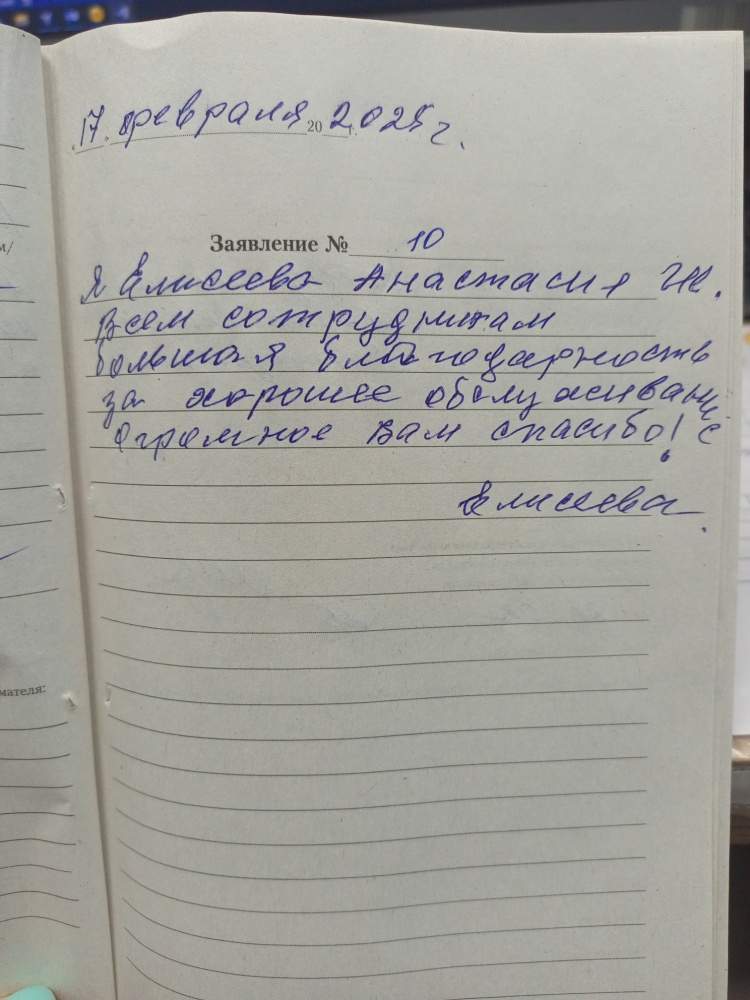 17. февраля 20 2025 г.
Заявление № 10
Я Елисеева Анастасия
Всем сотрудникам
большая благодарность
за хорошее обслуживание
огромное Вам спасибо!
Елисеева
м/
мателя: